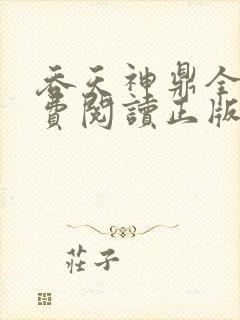 吞天神鼎全
費閱讀正版
莊子